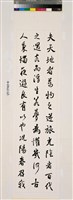 夫天地者萬物之逆旅光陰者百代
之過客而浮生若夢為歡幾何古
人秉燭夜遊良有以也況陽春召我